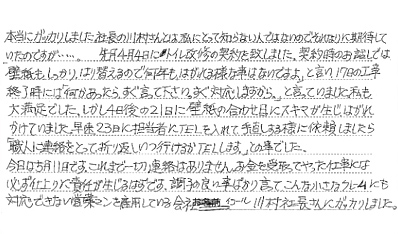 本当にガッカリしました社長の川村さんとは私にとって知らない人ではないのでそれなりに期待して
いたのですが……。先月4月4日にトイレ改修の契約を致しました。契約時のお話しでは
「壁紙もしっかりはり替えるので何年もはがれる様な事はないですよ」と言い17日の工事
終了時には「何かあったらすぐ言って下さい。すぐ対応しますから。」と言っていました。私も
大満足でした。しかし4日後の21日に壁紙の合わせ目にスキマが生じはがれ
かけていました。早速23日に担当者にTELを入れて手直しする様に依頼しましたら
「職人に連絡をとって折り返しいつ行けるかTELします」との事でした。
今日は5月11日です。これまで一切連絡はありません。お金を受取ってやった仕事には
必ず仕上りに責任が生じるはずです。調子の良い事ばかり言ってこんな小さなクレームにも
対応できない営業マンを雇用している会社 イコール 川村社長さんにガッカリしました。